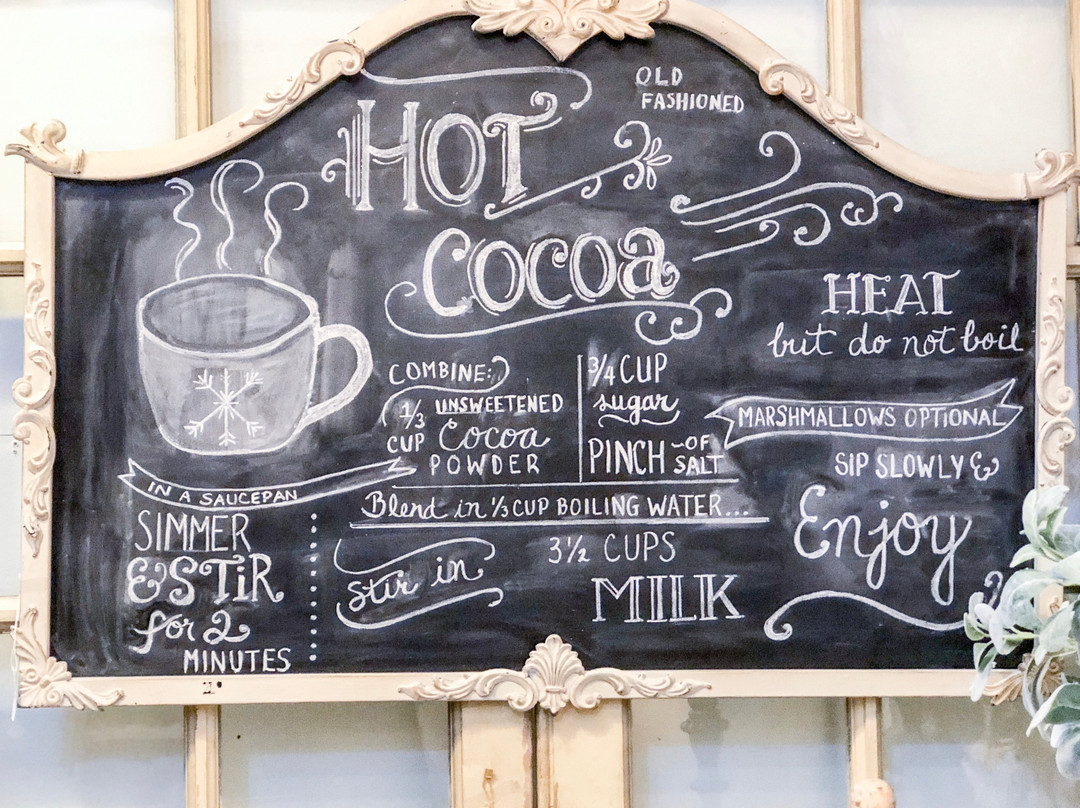 OLD
FASHIONED
HOT
COCOA
COMBINE:
1/3
CUP
UNSWEETENED
Cocoa
POWDER
3/4 CUP
sugar
PINCH ~OF
SALT
Blend in 1/3 CUP BOILING WATER...
IN A SAUCEPAN
SIMMER
& STIR
for 2
MINUTES
Stir in
3 1/2 CUPS
MILK
HEAT
but do not boil
MARSHMALLOWS OPTIONAL
SIP SLOWLY &
Enjoy